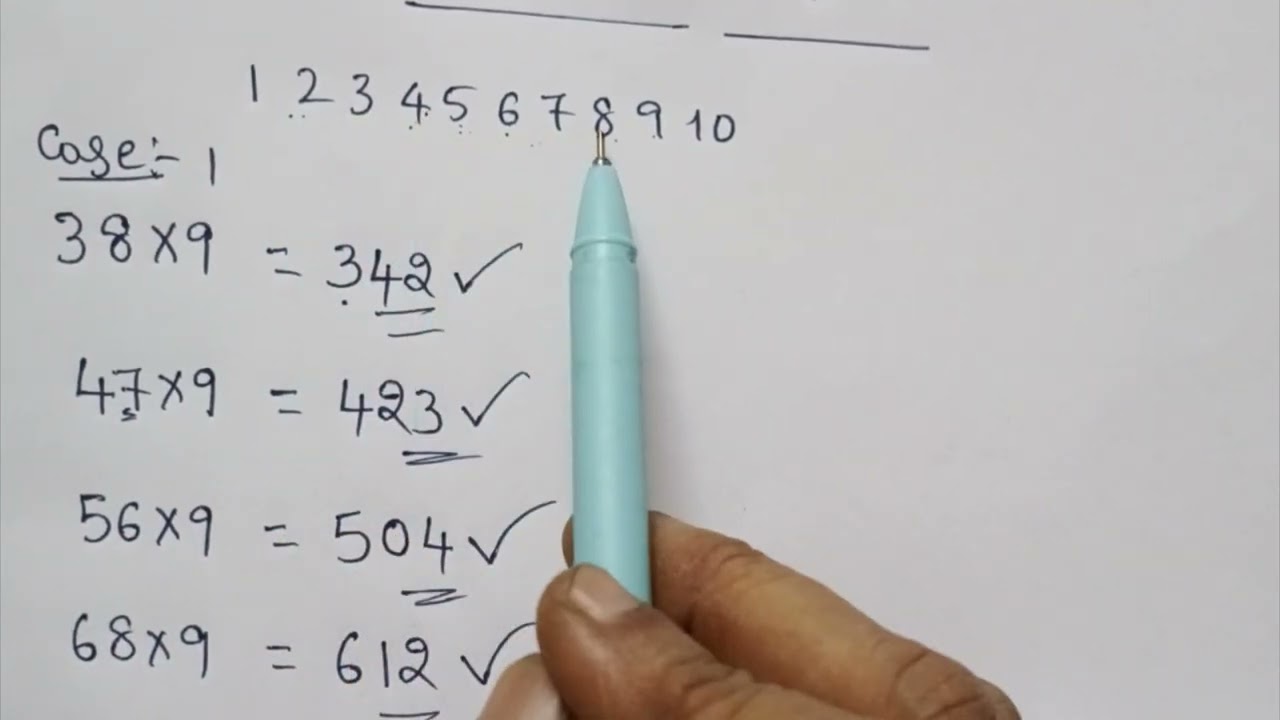 1 2 3 4 5 6 7 8 9 10
Case:- 1
38×9 = 342 ✓
47×9 = 423 ✓
56×9 = 504 ✓
68×9 = 612 ✓